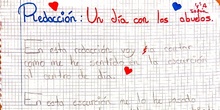 Redacción: Un día con los abuelos.
5ºA
En esta redacción, voy a contar
como me he sentido en la excursión
al centro de día.
En esta excursión me lo he pasado